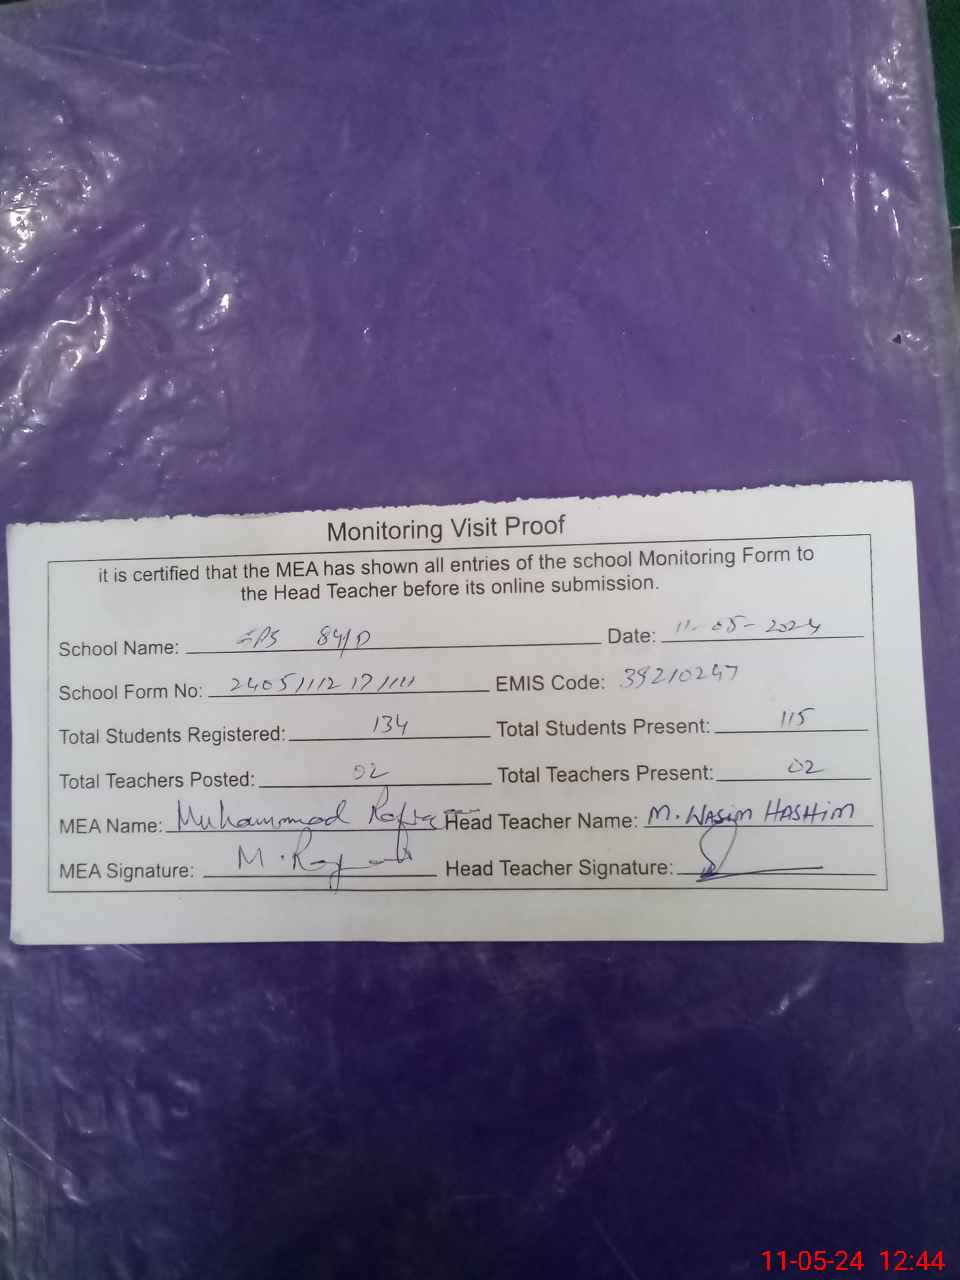 Monitoring Visit Proof
it is certified that the MEA has shown all entries of the school Monitoring Form to
the Head Teacher before its online submission.
School Name: GPS 84/D Date: 11-05-2024
School Form No: EMIS Code: 39210247
Total Students Registered: 134 Total Students Present: 115
Total Teachers Posted: 02 Total Teachers Present: 02
MEA Name: Muhammad Head Teacher Name: M. WASIM HASHIM
MEA Signature: M. Head Teacher Signature:
11-05-24 12:44